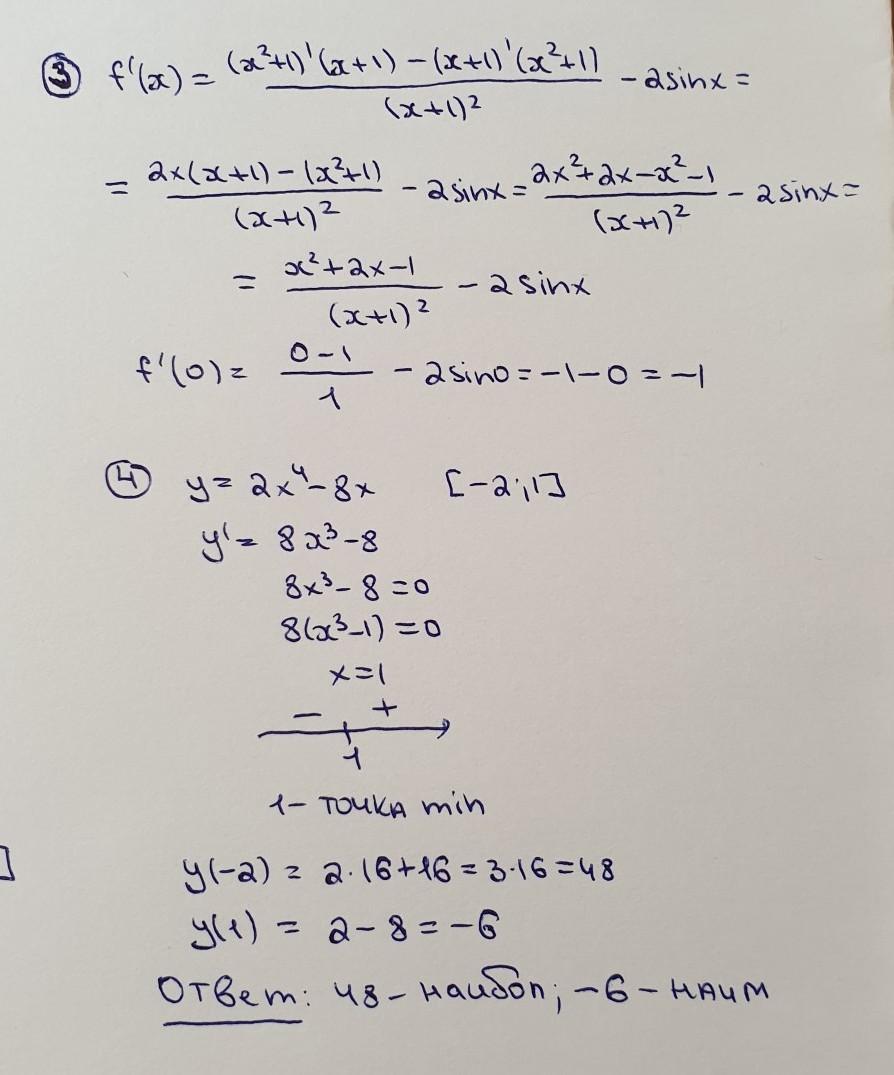 ③ f'(x) = ((x²+1)'(x+1) − (x+1)'(x²+1))/(x+1)² − 2sinx =
= (2x(x+1) − (x²+1))/(x+1)² − 2sinx = (2x²+2x−x²−1)/(x+1)² − 2sinx =
= (x²+2x−1)/(x+1)² − 2sinx
f'(0) = (0−1)/1 − 2sin0 = −1−0 = −1
④ y = 2x⁴−8x [−2;1]
y' = 8x³−8
8x³−8 = 0
8(x³−1) = 0
x=1
− +
1
1 − точка min
y(−2) = 2·16+16 = 3·16 = 48
]
y(1) = 2−8 = −6
Ответ: 48 − наибол; −6 − наим